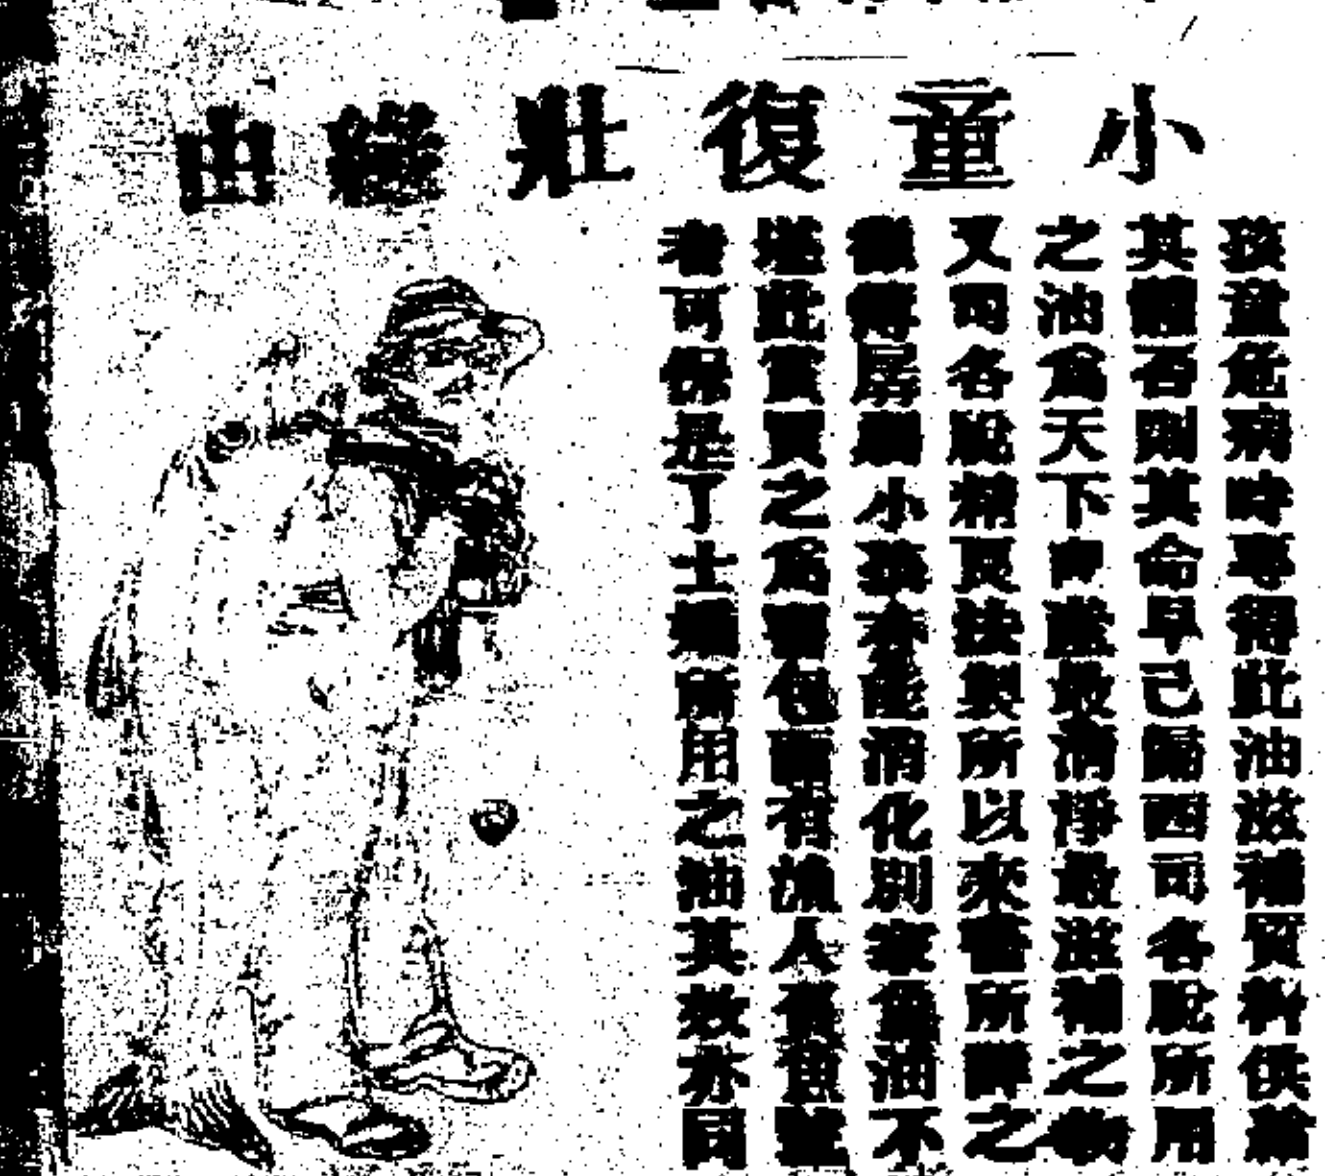 小童復壯緣由
孩童危病時專得此油滋補質料供
其體否則其命早已 西司各脫所用
之油為天下 最清淨最滋補之物
又司各脫精良法製所以來 所 之
房 小孩亦能消化別家 油不
堪此 買之為 包面有漁人負魚
者可保是 士 所用之油其效亦同